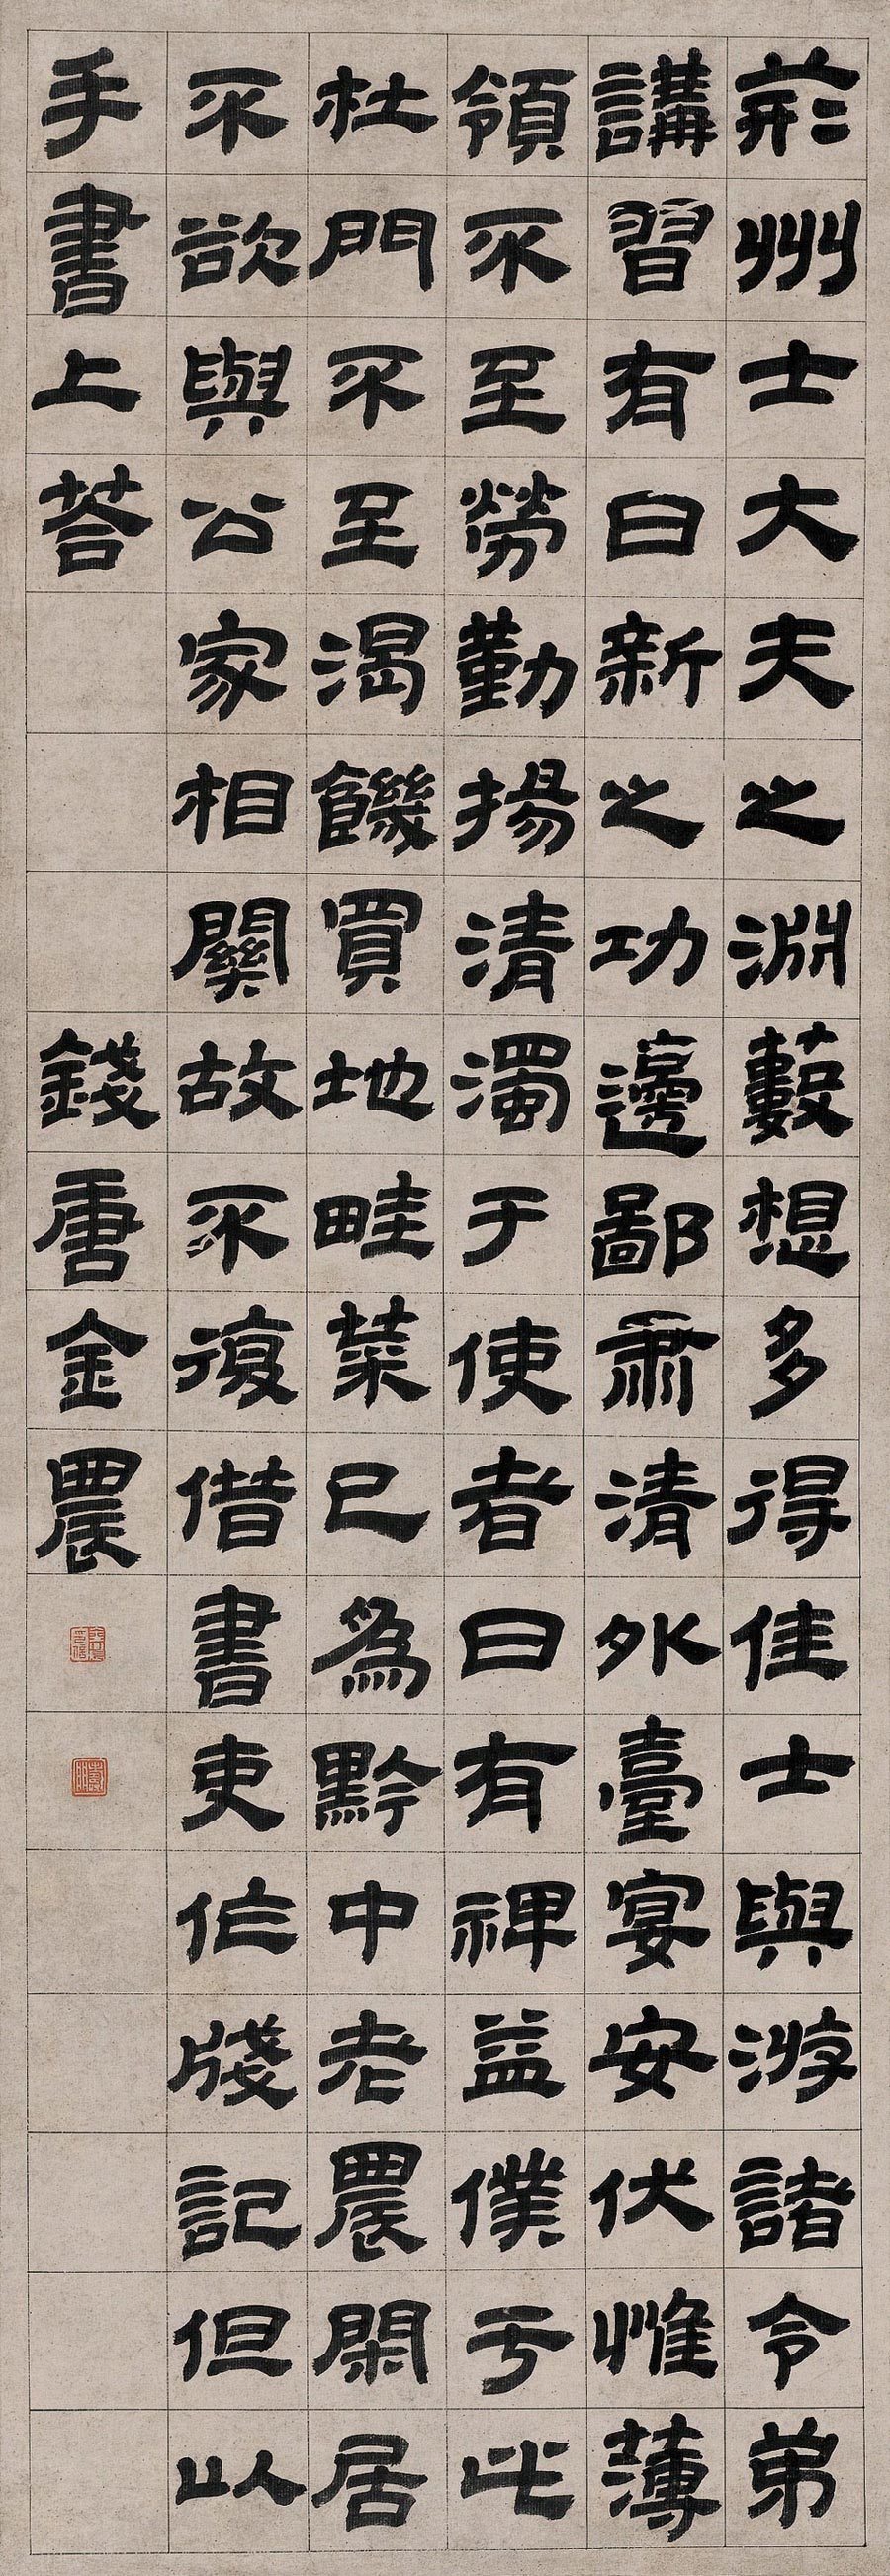 荊州士大夫之淵藪想多得佳士與游諸令弟
講習有日新之功邊鄙肅清外臺宴安伏惟薄
領不至勞勤揚清濁于使者曰有裨益僕于此
杜門不至渴饑買地畦菜已為黔中老農閑居
不欲與公家相關故不復借書吏作牋記但以
手書上荅
錢唐金農
金農印信
壽門